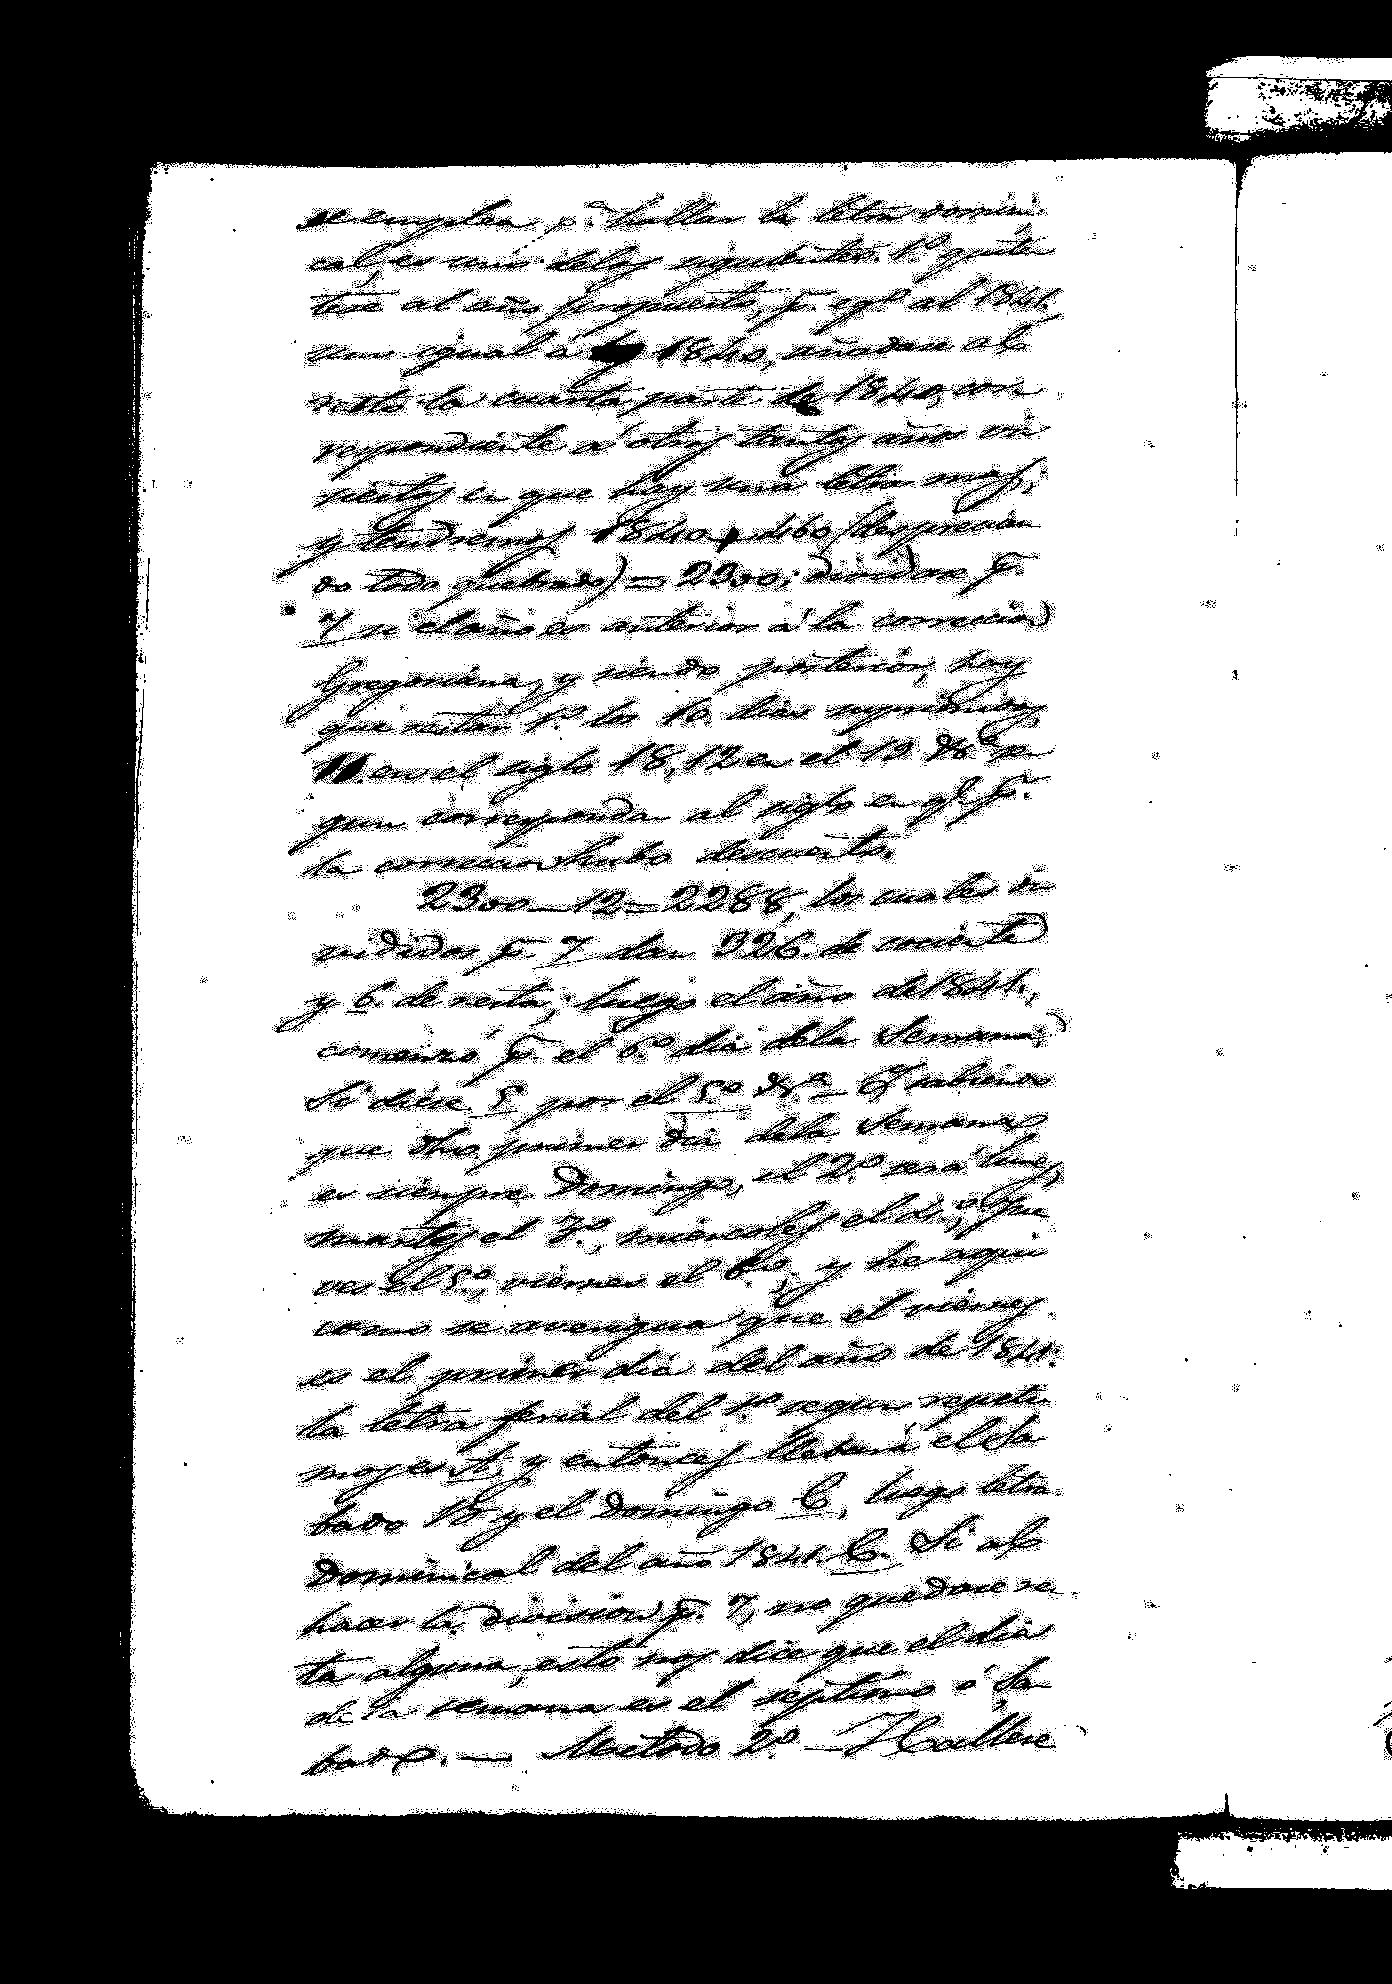 se emplea p.ª hallar la letra domini
cal, es uno delos siguientes. 1.º quita
tese al año propuesto, p. egº al 1841.
uno igual á 1840, añadase al
resto la cuarta parte de 1840, cor
respondiente á otros tantos años vi
siestos en que hay una letra mas,
y tendremos 1840 + 460 (desprecian
do todo quebrado) = 2300; dividase p.
7 si el año es anterior á la correccion
Gregoriana, y siendo posterior, hay
que restar 1.º los 10. dias suprimidos,
11 en el siglo 18, 12 en el 19 &ª se
gun corresponda al siglo en q.e p.r
la correccion hubo descuento.
2300 — 12 = 2288, los cuales di
vididos p. 7 dan 326. de cociente
y 6. de resta; luego el año de 1841.,
comenzó p. el 6.º dia dela Semana,
Si diese 5. por el 5.º &ª — Y sabiendo
que dho primer dia dela Semana
es siempre Domingo, el 2.º será lunes,
martes el 3.º, miercoles el 4.º, jue
ves el 5.º, viernes el 6.º, y he aqui
como se averigua que el viernes
es el primer dia del año de 1841.
la letra ferial del 1.º segun repeti
mos es A, y entonces llebará el Sa
bado B y el Domingo C, luego letra
Dominical del año 1841. C. Si al
hacer la division p. 7, no quedase re
ta alguna, esto nos dice que el dia
de la semana es el septimo ó Sa
bado. — Metodo 2.º — Hallese